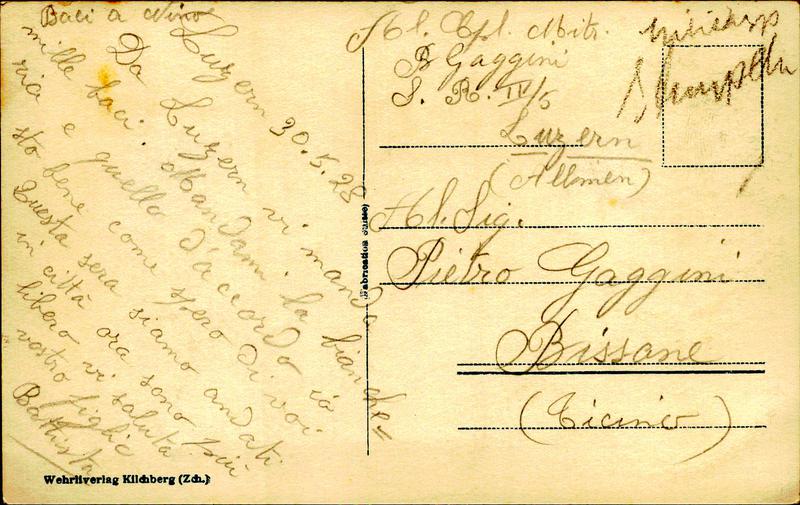 Baci a Nino
Luzern 30.5.28
Da Luzern vi mando
mille baci. Mandami la bianche=
ria e quello d'accordo io
sto bene come spero di voi
Questa sera siamo andati
in città ora sono
libero vi saluta
vostro figlio
Battista
Al. Cpl. Mitr.
B Gaggini
S. R. IV/5
Luzern
(Allmen)
Al. Sig.
Pietro Gaggini
Bissone
(Ticino)
Fabrication Suisse
Wehrliverlag Kilchberg (Zch.)